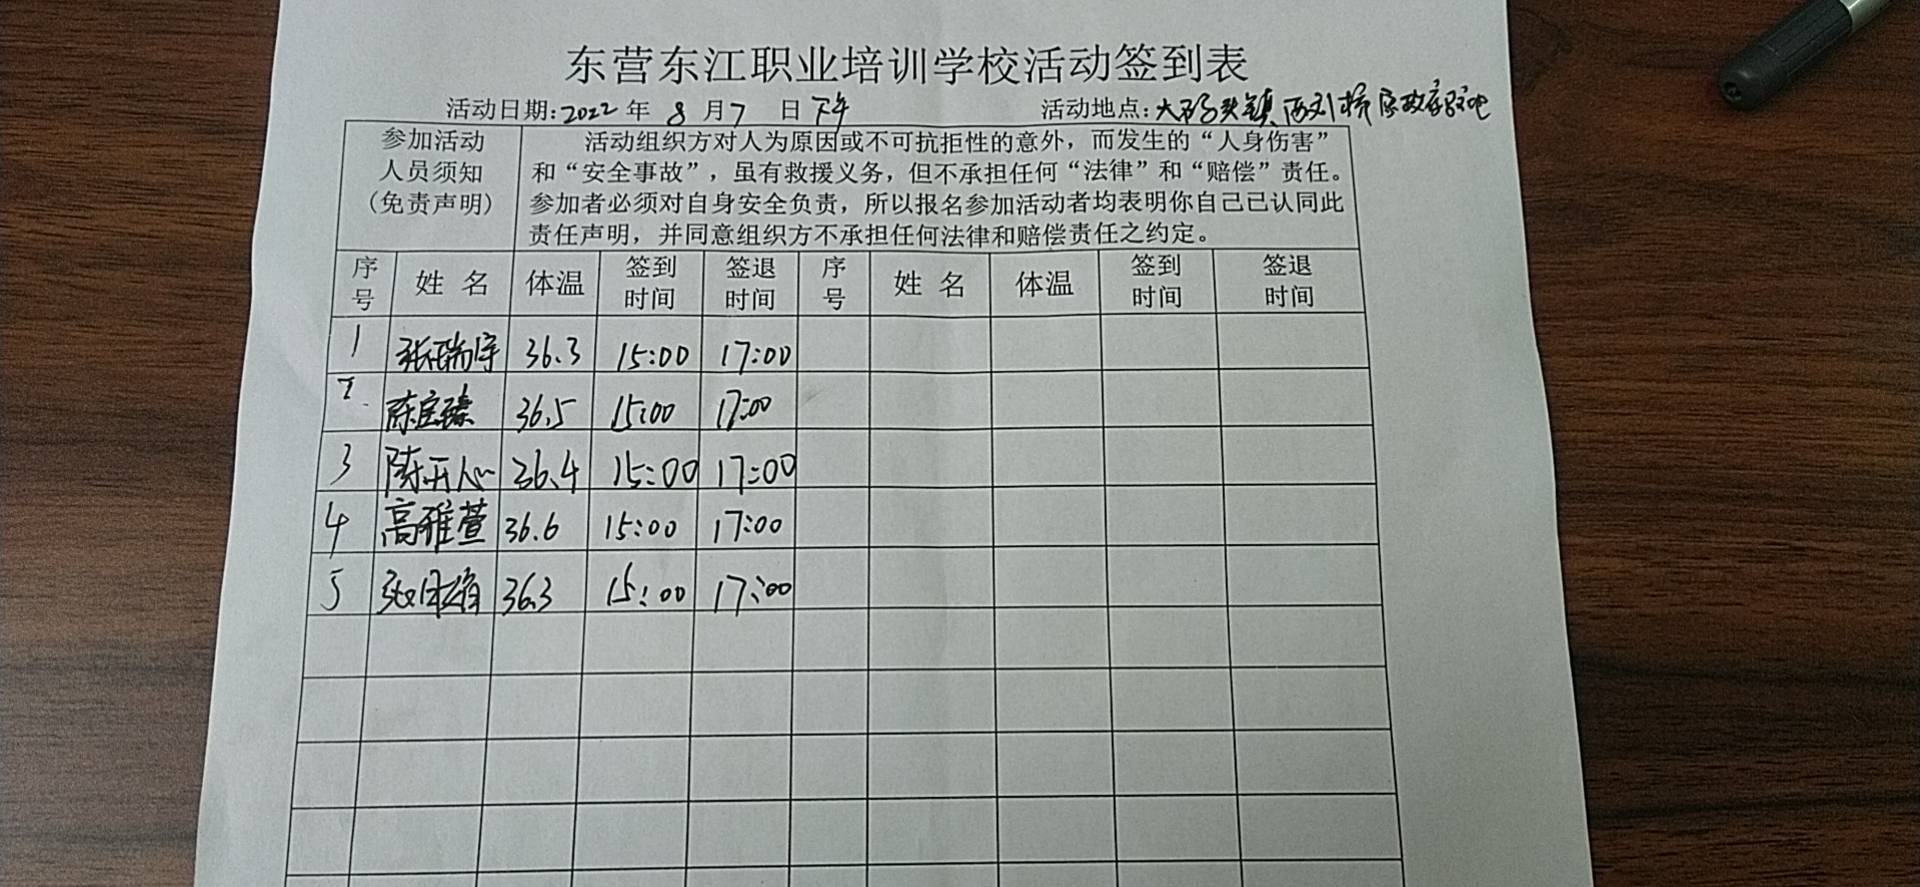 东营东江职业培训学校活动签到表
活动日期:2022 年 8 月 7 日 下午 活动地点:大码头镇西刘桥
参加活动
人员须知
(免责声明)
活动组织方对人为原因或不可抗拒性的意外，而发生的“人身伤害”
和“安全事故”，虽有救援义务，但不承担任何“法律”和“赔偿”责任。
参加者必须对自身安全负责，所以报名参加活动者均表明你自己已认同此
责任声明，并同意组织方不承担任何法律和赔偿责任之约定。
序号 姓 名 体温 签到时间 签退时间 序号 姓 名 体温 签到时间 签退时间
1 张瑞宇 36.3 15:00 17:00
2. 陈宝臻 36.5 15:00 17:00
3 陈开心 36.4 15:00 17:00
4 高雅萱 36.6 15:00 17:00
5 36.3 15:00 17:00